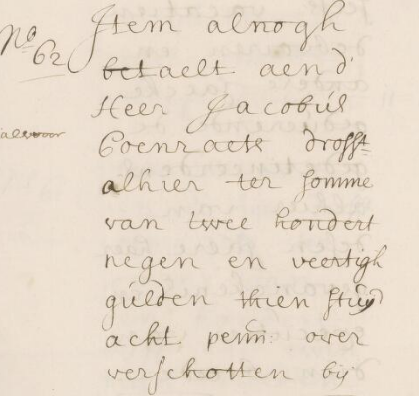 No 62
Item alnogh
betaelt aen d'
Heer Jacobus
Coenraets drosst
alhier ter somme
van twee hondert
negen en veertigh
gulden thien stuy
acht penn: over
verschotten bij
alvoor